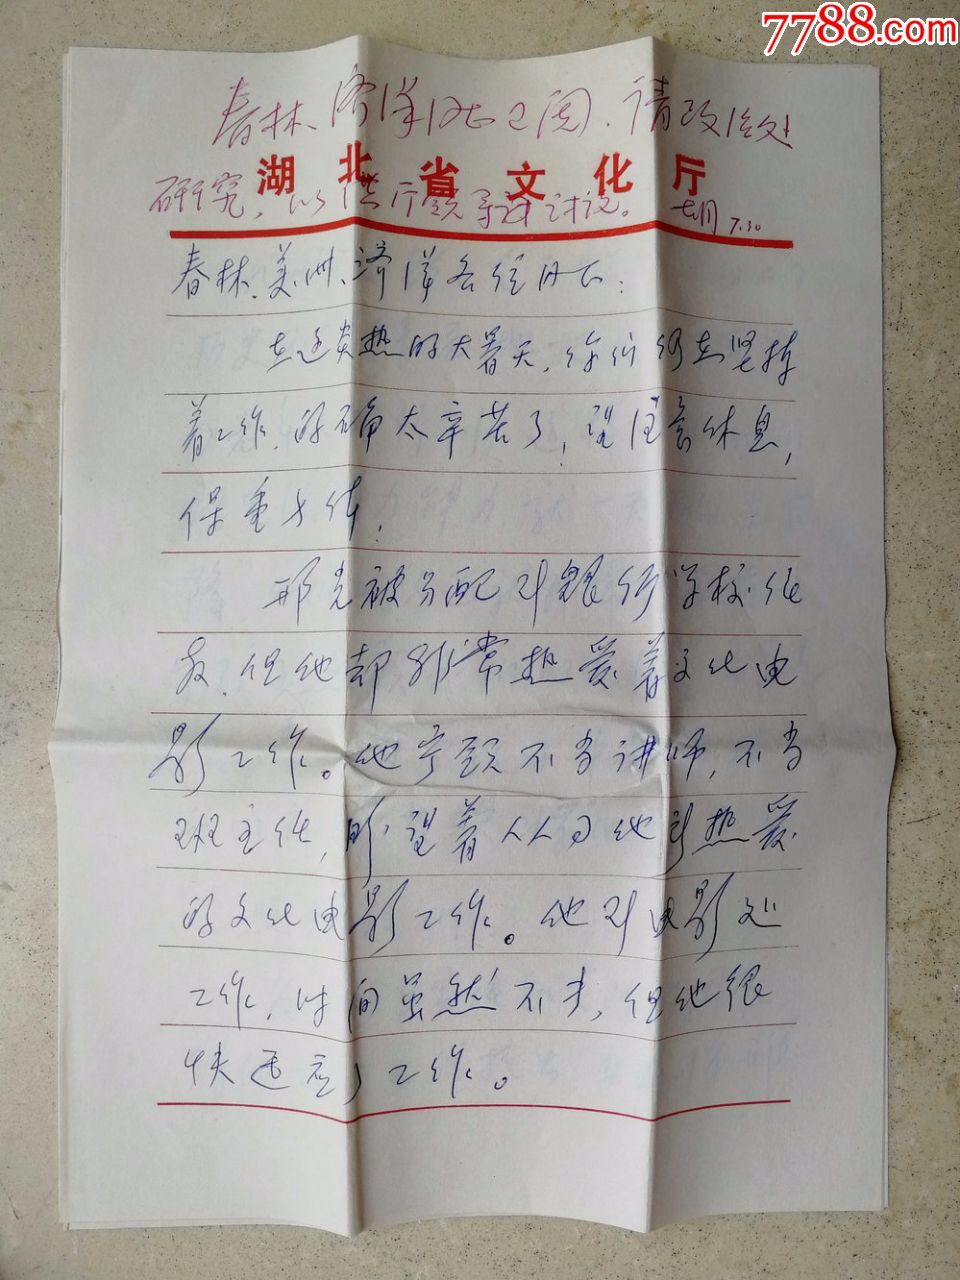 7788.com
春林、济洋同志已阅，请政治处
湖北省文化厅
研究，以供厅领导讨论。 7.30
春林、美洲、济洋各位同志：
在这炎热的大暑天，你们仍在坚持
着工作，的确太辛苦了，望注意休息，
保重身体！
邢光被分配到银行学校任
教，但他却非常热爱着文化电
影工作。他宁愿不当讲师，不当
班主任，盼望着从事他所热爱
的文化电影工作。他到电影处
工作，时间虽然不长，但他很
快适应了工作。